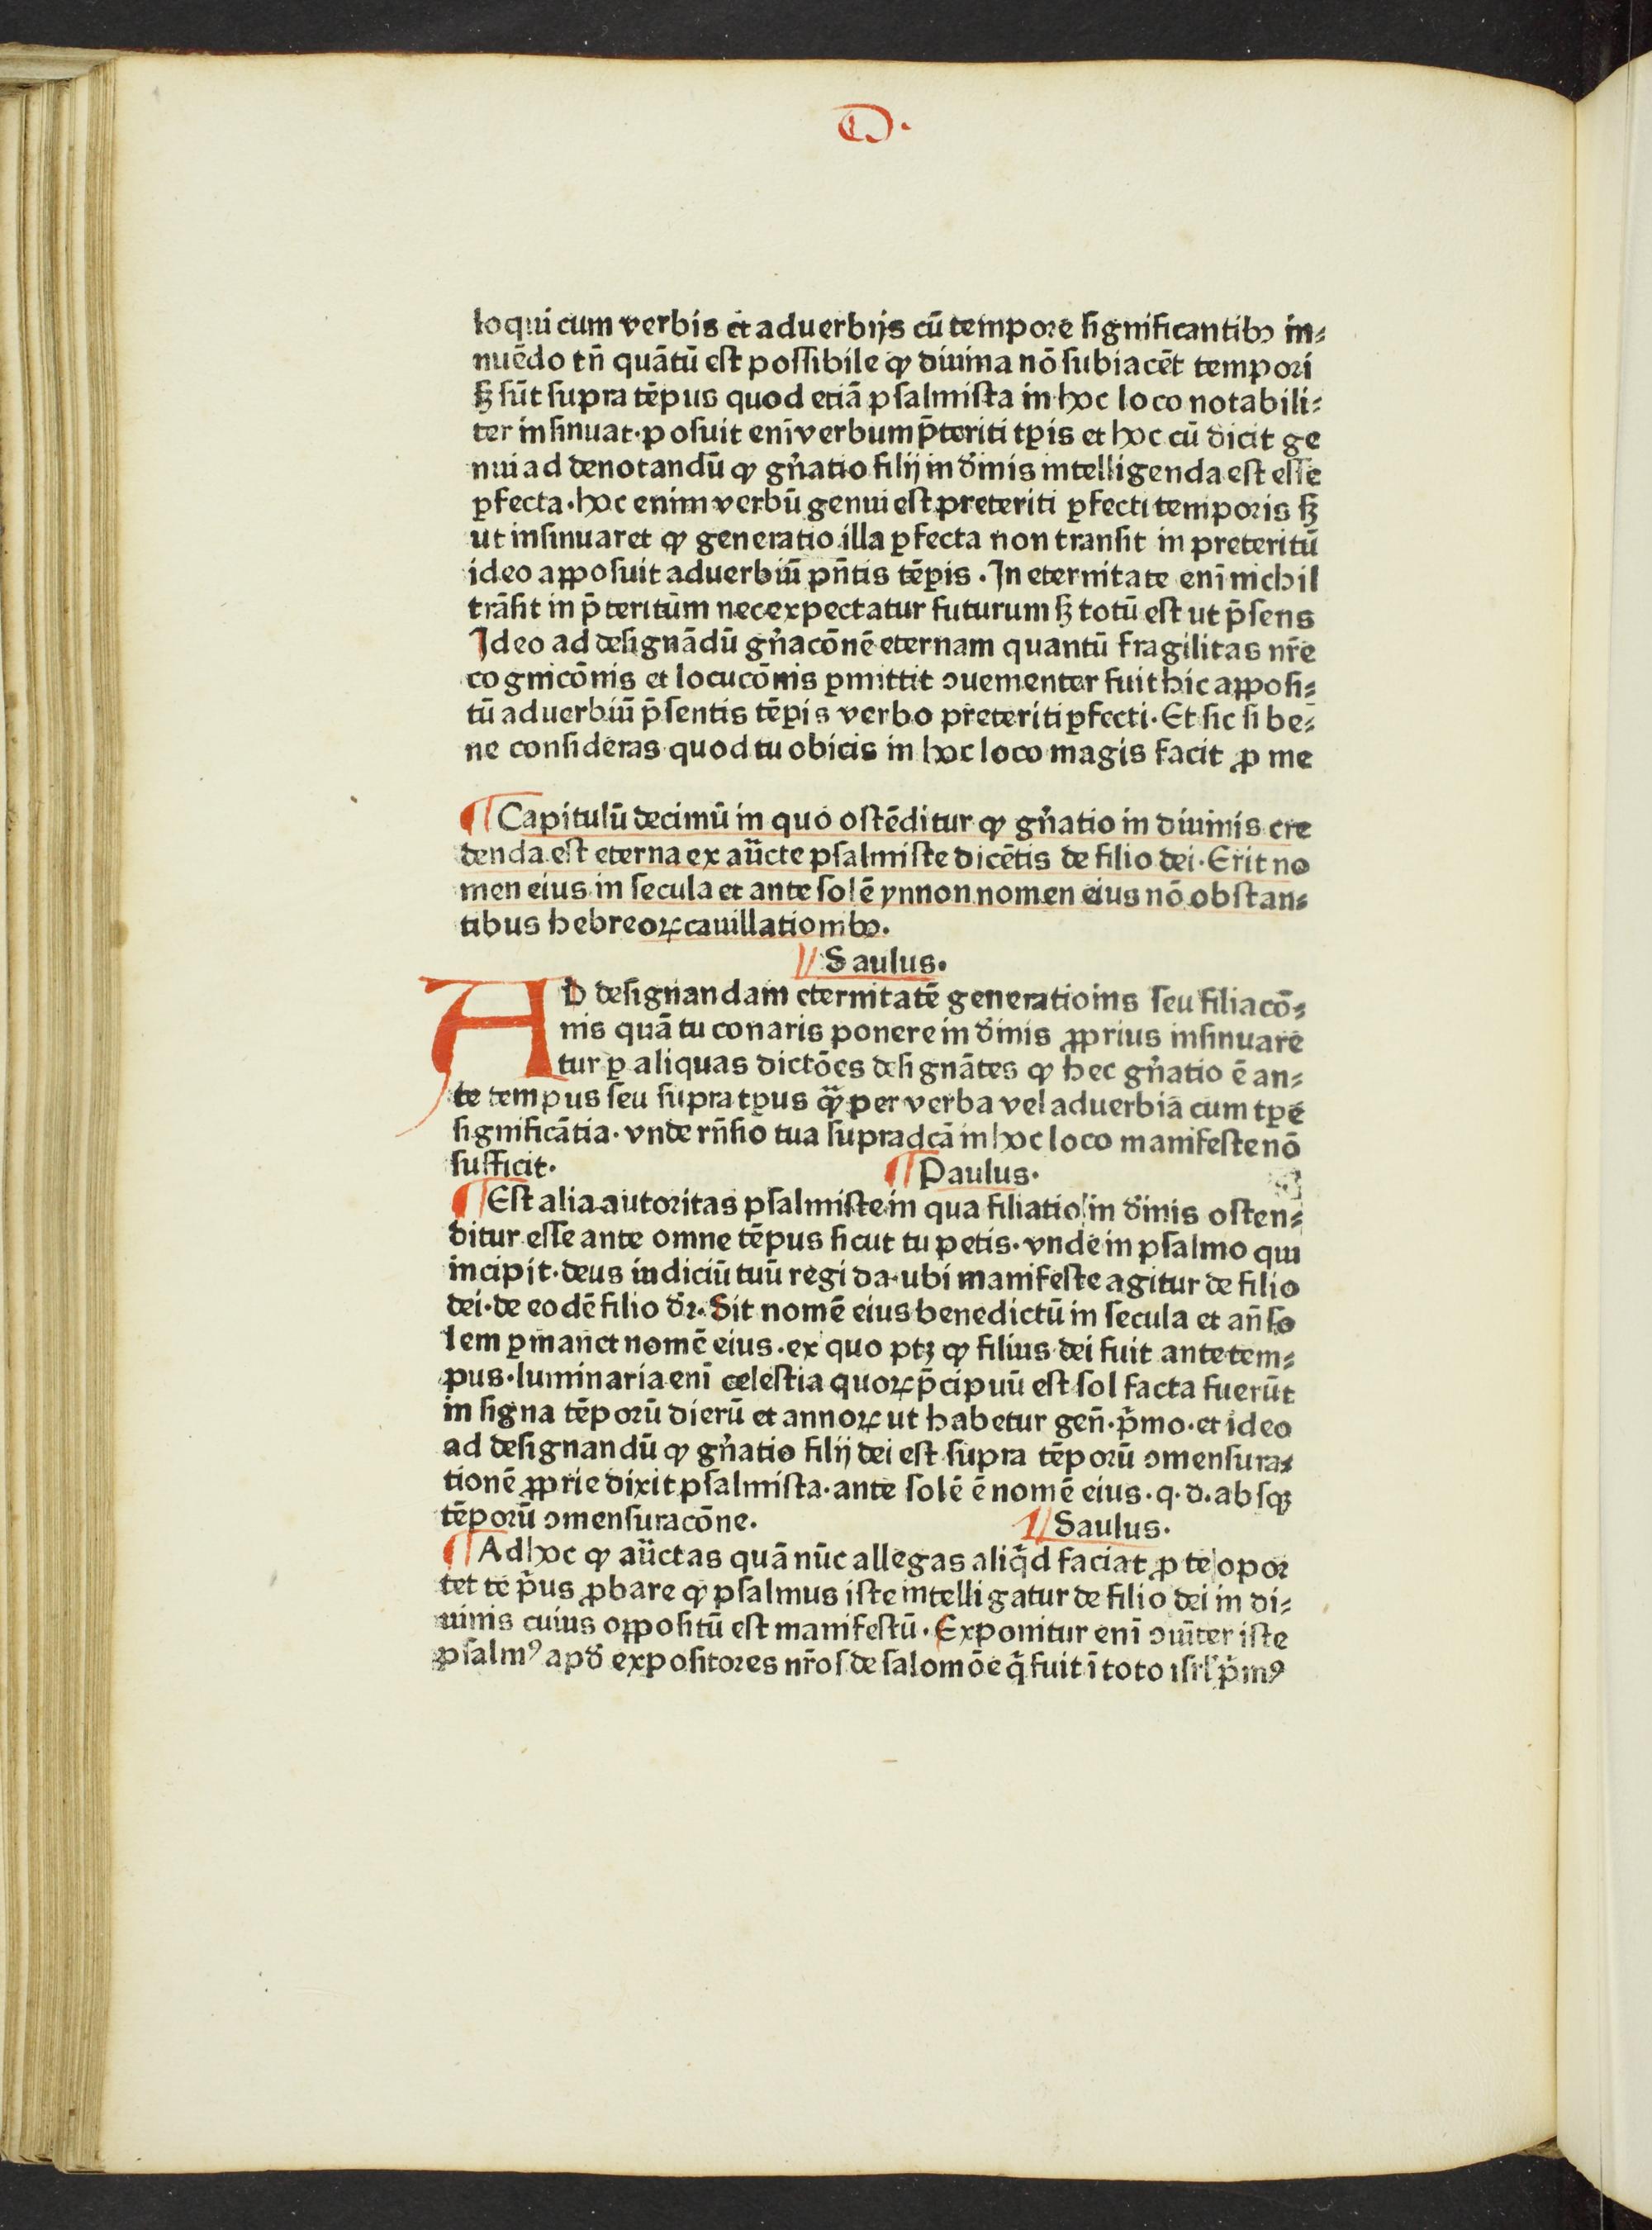 D.
loqui cum verbis et aduerbijs cū tempore significantibꝫ in⸗
nuēdo tn̄ quātū est possibile ꝙ diuina nō subiacēt tempori
sꝫ sūt supra tēpus quod etiā psalmista in hoc loco notabili⸗
ter insinuat·posuit enī verbum p̄teriti tꝑis et hoc cū dicit ge
nui ad denotandū ꝙ gn̄atio filij in diīnis intelligenda est esse
ꝑfecta·hoc enim verbū genui est preteriti ꝑfecti temporis sꝫ
ut insinuaret ꝙ generatio illa ꝑfecta non transit in preteritū
ideo apposuit aduerbiū pn̄tis tēꝑis·In eternitate enī nichil
trāsit in p̄teritum nec expectatur futurum sꝫ totū est ut p̄sens
Ideo ad designādū gn̄acōnē eternam quantū fragilitas nr̄e
cognicōnis et locucōnis ꝑmittit ↄuenienter fuit hic apposi⸗
tū aduerbiū p̄sentis tēꝑis verbo preteriti ꝑfecti·Et sic si be⸗
ne consideras quod tu obicis in hoc loco magis facit ꝓ me
¶Capitulū decimū in quo ostēditur ꝙ gn̄atio in diuinis cre
denda est eterna ex aūcte psalmiste dicētis de filio dei·Erit no
men eius in secula et ante solē ynnon nomen eius nō obstan⸗
tibus hebreoꝝ cauillationibꝫ.
¶Saulus.
AD designandam eternitatē generationis seu filiacō⸗
nis quā tu conaris ponere in diīnis ꝓprius insinuare
tur ꝑ aliquas dictōes designātes ꝙ hec gn̄atio ē an⸗
te tempus seu supra tꝑus qᷓꝫ per verba vel aduerbia cum tꝑe
significātia·vnde rn̄sio tua supradcā in hoc loco manifeste nō
sufficit. ¶Paulus.
¶Est alia autoritas psalmiste in qua filiatio in diīnis osten⸗
ditur esse ante omne tēpus sicut tu petis·vnde in psalmo qui
incipit·deus iudiciū tuū regi da·ubi manifeste agitur de filio
dei·de eodē filio dr̄.Sit nomē eius benedictū in secula et an̄ so
lem ꝑmanet nomē eius·ex quo ptꝫ ꝙ filius dei fuit ante tem⸗
pus·luminaria enī celestia quoꝝ p̄cipuū est sol facta fuerūt
in signa tēporū dierū et annoꝝ ut habetur gen̄·pͥmo·et ideo
ad designandū ꝙ gn̄atio filij dei est supra tēporū ↄmensura⸗
tionē ꝓprie dixit psalmista·ante solē ē nomē eius·q·d·absqꝫ
tēporū ↄmensuracōne. ¶Saulus.
¶Ad hoc ꝙ aūctas quā nūc allegas aliqͥd faciat ꝓ te opor
tet te pͥus ꝓbare ꝙ psalmus iste intelligatur de filio dei in di⸗
uinis cuius oppositū est manifestū·Exponitur enī ↄūiter iste
psalmꝰ apd̄ expositores nr̄os de salomōe qͥ fuit ī toto isrl̄ pͥmꝰ